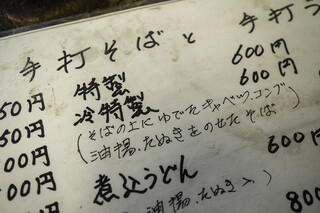 手打そばと
手打う
50円 特製 600円
50円 冷特製 600円
(そばの上にゆでたキャベツ.コンブ
油揚.たぬきをのせたそば)
00円
00円 煮込うどん 600円
油揚.たぬき入) 800